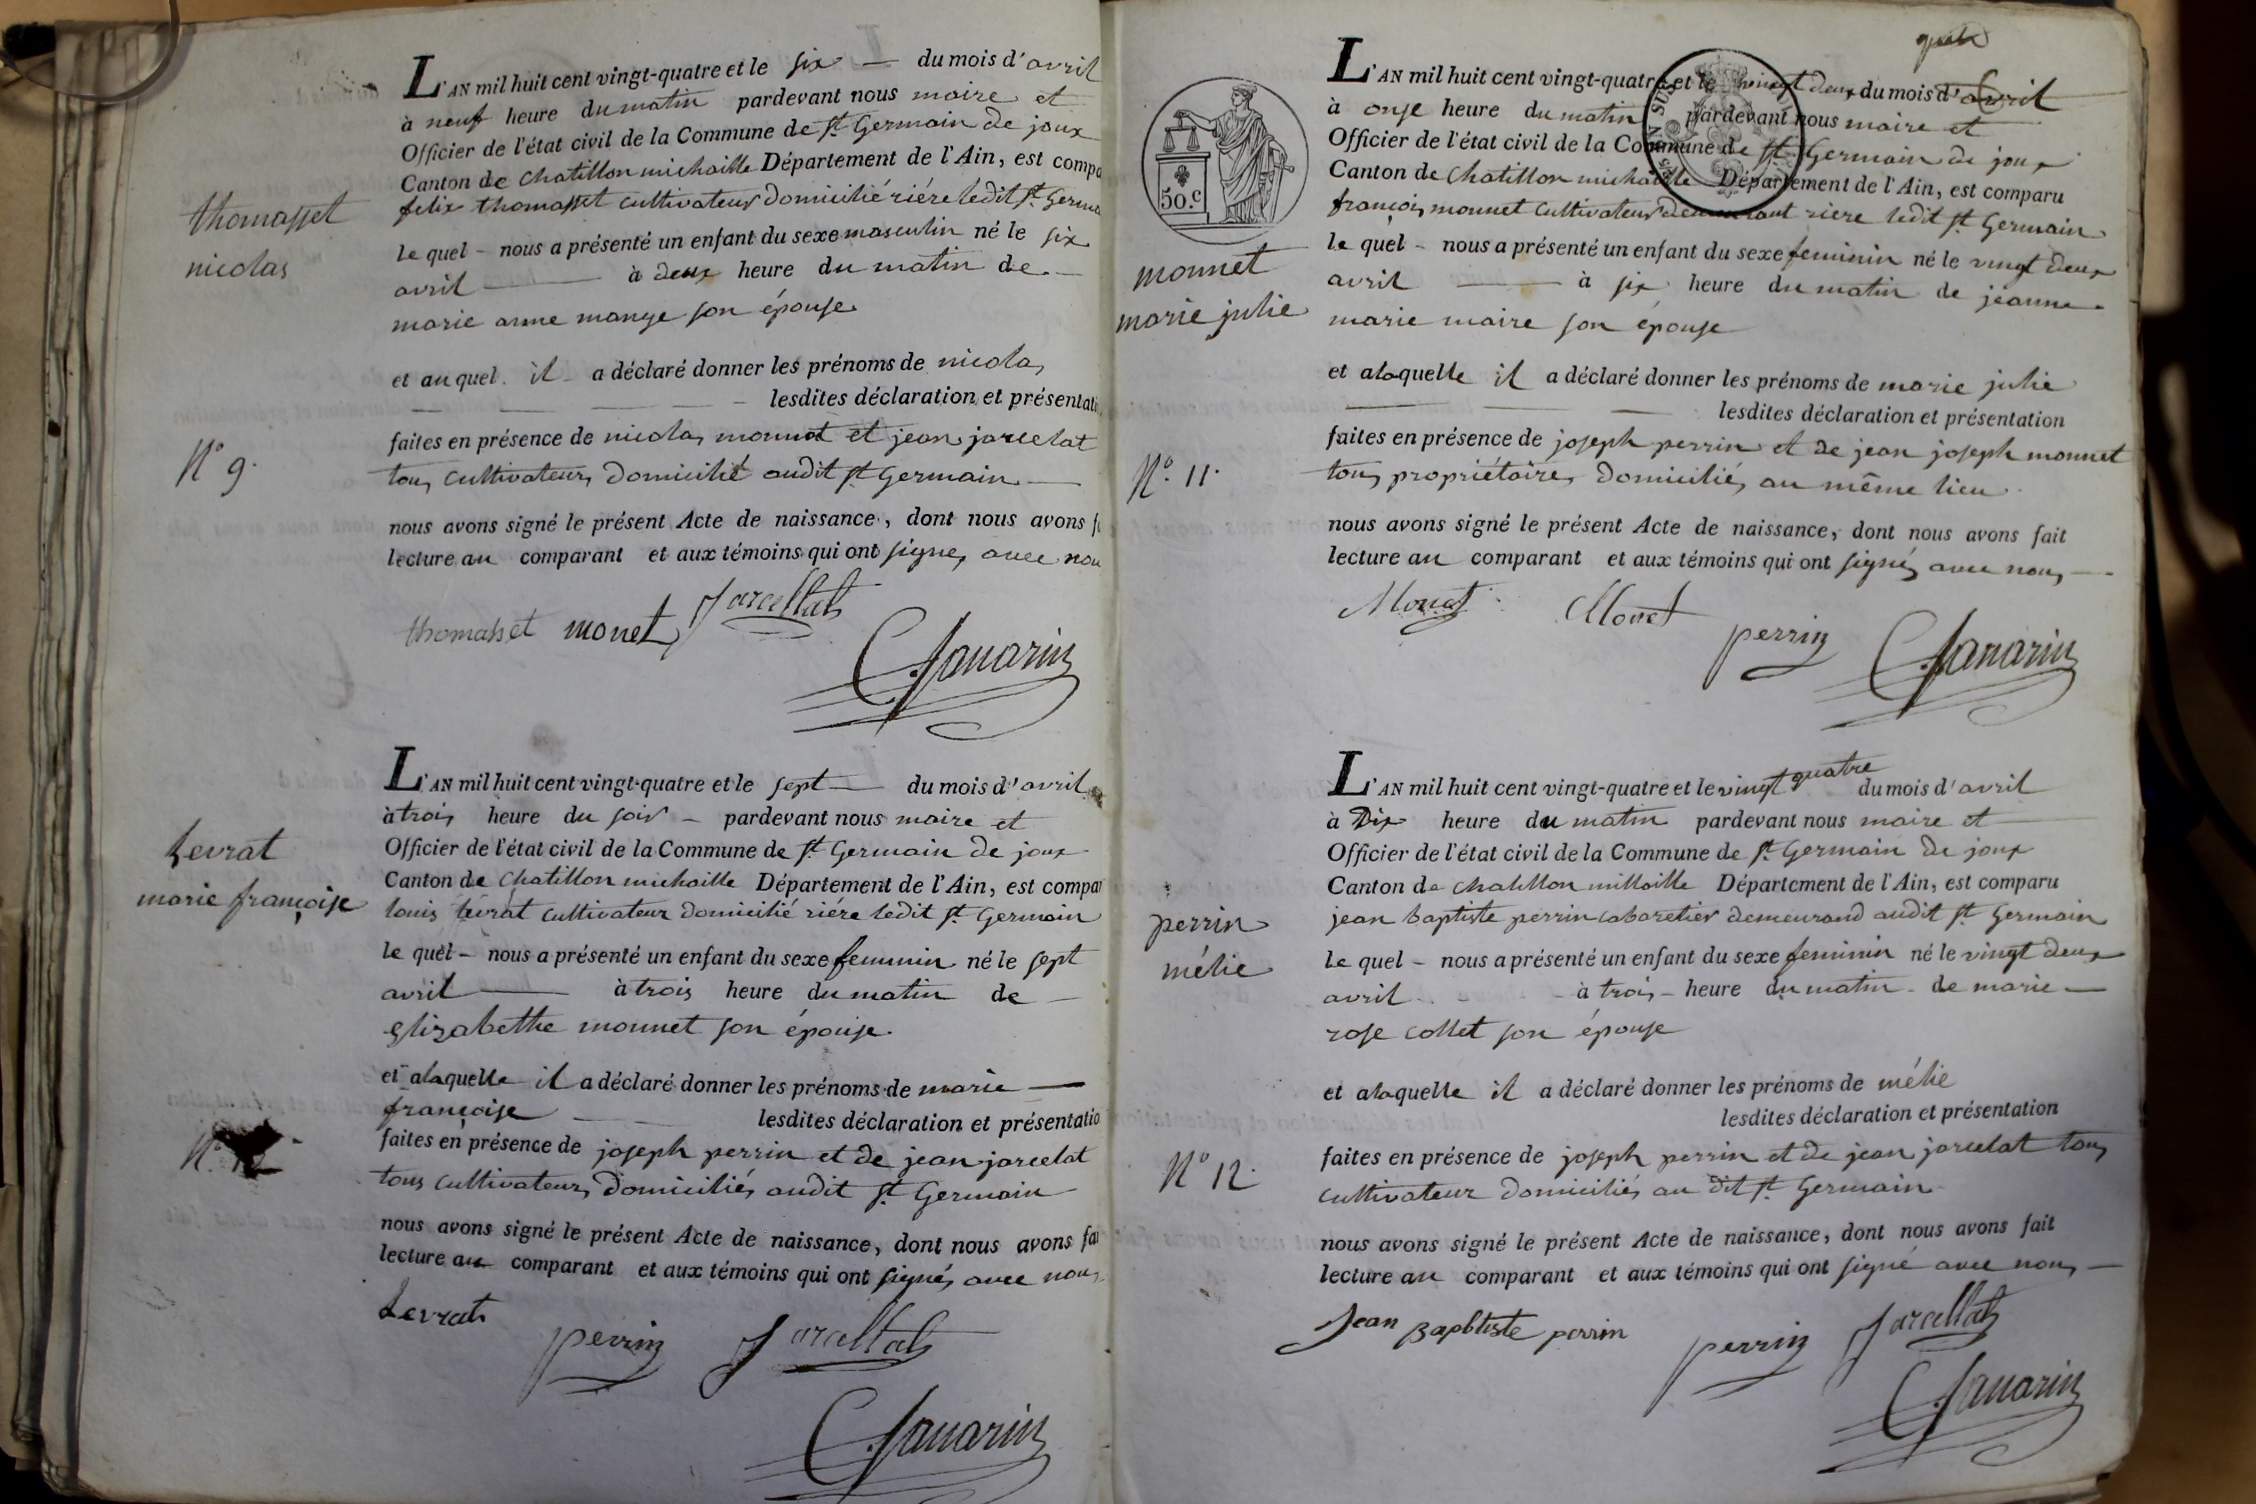 L'AN mil huit cent vingt-quatre et le six du mois d'avril
à neuf heure du matin pardevant nous maire et
Officier de l'état civil de la Commune de St. Germain de joux
Canton de Chatillon michaille Département de l'Ain, est compa
felix thomasset cultivateur domicilié riére ledit St. Germa
le quel - nous a présenté un enfant du sexe masculin né le six
avril à deux heure du matin de
marie anne mange son épouse
et au quel il a déclaré donner les prénoms de nicolas
lesdites déclaration et présentati
faites en présence de nicolas monnet et jean jarcelat
tous cultivateurs domicilié audit St Germain
nous avons signé le présent Acte de naissance, dont nous avons f
lecture au comparant et aux témoins qui ont signés avec nou
thomasset monet Jarcellat
Savarin
thomasset
nicolas
N° 9.
L'AN mil huit cent vingt-quatre et le sept du mois d'avril
à trois heure du soir - pardevant nous maire et
Officier de l'état civil de la Commune de St. Germain de joux
Canton de Chatillon michaille Département de l'Ain, est compar
louis levrat cultivateur domicilié riére ledit St. Germain
le quel - nous a présenté un enfant du sexe feminin né le sept
avril à trois heure du matin de
Elizabethe monnet son épouse.
et alaquelle il a déclaré donner les prénoms de marie
françoise lesdites déclaration et présentatio
faites en présence de joseph perrin et de jean jarcelat
tous cultivateurs domiciliés audit St. Germain
nous avons signé le présent Acte de naissance, dont nous avons fai
lecture au comparant et aux témoins qui ont signés avec nous
Levrat perrin Jarcellat
Savarin
Levrat
marie françoise
N°
L'AN mil huit cent vingt-quatre et le vingt deux du mois d'avril
à onze heure du matin pardevant nous maire et
Officier de l'état civil de la Commune de St. Germain de joux
Canton de Chatillon michaille Département de l'Ain, est comparu
françois monnet cultivateur demeurant riere ledit St. Germain
le quel - nous a présenté un enfant du sexe feminin né le vingt deux
avril à six heure du matin de jeanne
marie maire son épouse
et alaquelle il a déclaré donner les prénoms de marie julie
lesdites déclaration et présentation
faites en présence de joseph perrin et de jean joseph monnet
tous propriétaires domiciliés au même lieu.
nous avons signé le présent Acte de naissance, dont nous avons fait
lecture au comparant et aux témoins qui ont signés avec nous
Monet Monet perrin
Savarin
50.c
monnet
marie julie
N°. 11.
L'AN mil huit cent vingt-quatre et le vingt quatre du mois d'avril
à Dix heure du matin pardevant nous maire et
Officier de l'état civil de la Commune de St. Germain de joux
Canton de chatillon millaille Département de l'Ain, est comparu
jean baptiste perrin cabaretier demeurand audit St. Germain
le quel - nous a présenté un enfant du sexe feminin né le vingt deux
avril à trois - heure du matin de marie
rose collet son épouse
et alaquelle il a déclaré donner les prénoms de mélie
lesdites déclaration et présentation
faites en présence de joseph perrin et de jean jarcelat tous
cultivateur domiciliés au dit St. Germain
nous avons signé le présent Acte de naissance, dont nous avons fait
lecture au comparant et aux témoins qui ont signé avec nous
Jean Bapbtiste perrin perrin Jarcellat
Savarin
perrin
mélie
N° 12.